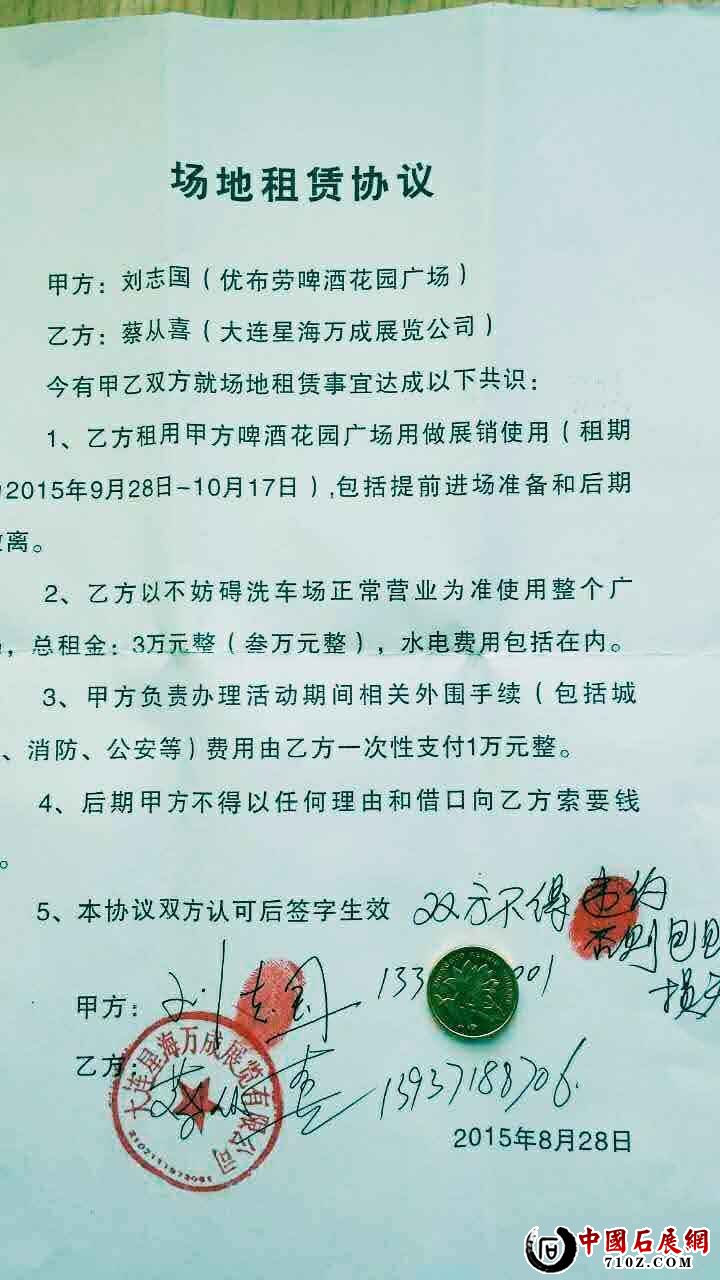 场地租赁协议
甲方：刘志国（优布劳啤酒花园广场）
乙方：蔡从喜（大连星海万成展览公司）
今有甲乙双方就场地租赁事宜达成以下共识：
1、乙方租用甲方啤酒花园广场用做展销使用（租期
2015年9月28日-10月17日）,包括提前进场准备和后期
离。
2、乙方以不妨碍洗车场正常营业为准使用整个广
，总租金：3万元整（叁万元整），水电费用包括在内。
3、甲方负责办理活动期间相关外围手续（包括城
、消防、公安等）费用由乙方一次性支付1万元整。
4、后期甲方不得以任何理由和借口向乙方索要钱
。
5、本协议双方认可后签字生效 双方不得违约
否则包
损
甲方：刘志国 133 001
乙方：蔡从喜 13937188706.
大连星海万成展览有限公司
2015年8月28日
中國石展網
710Z.COM